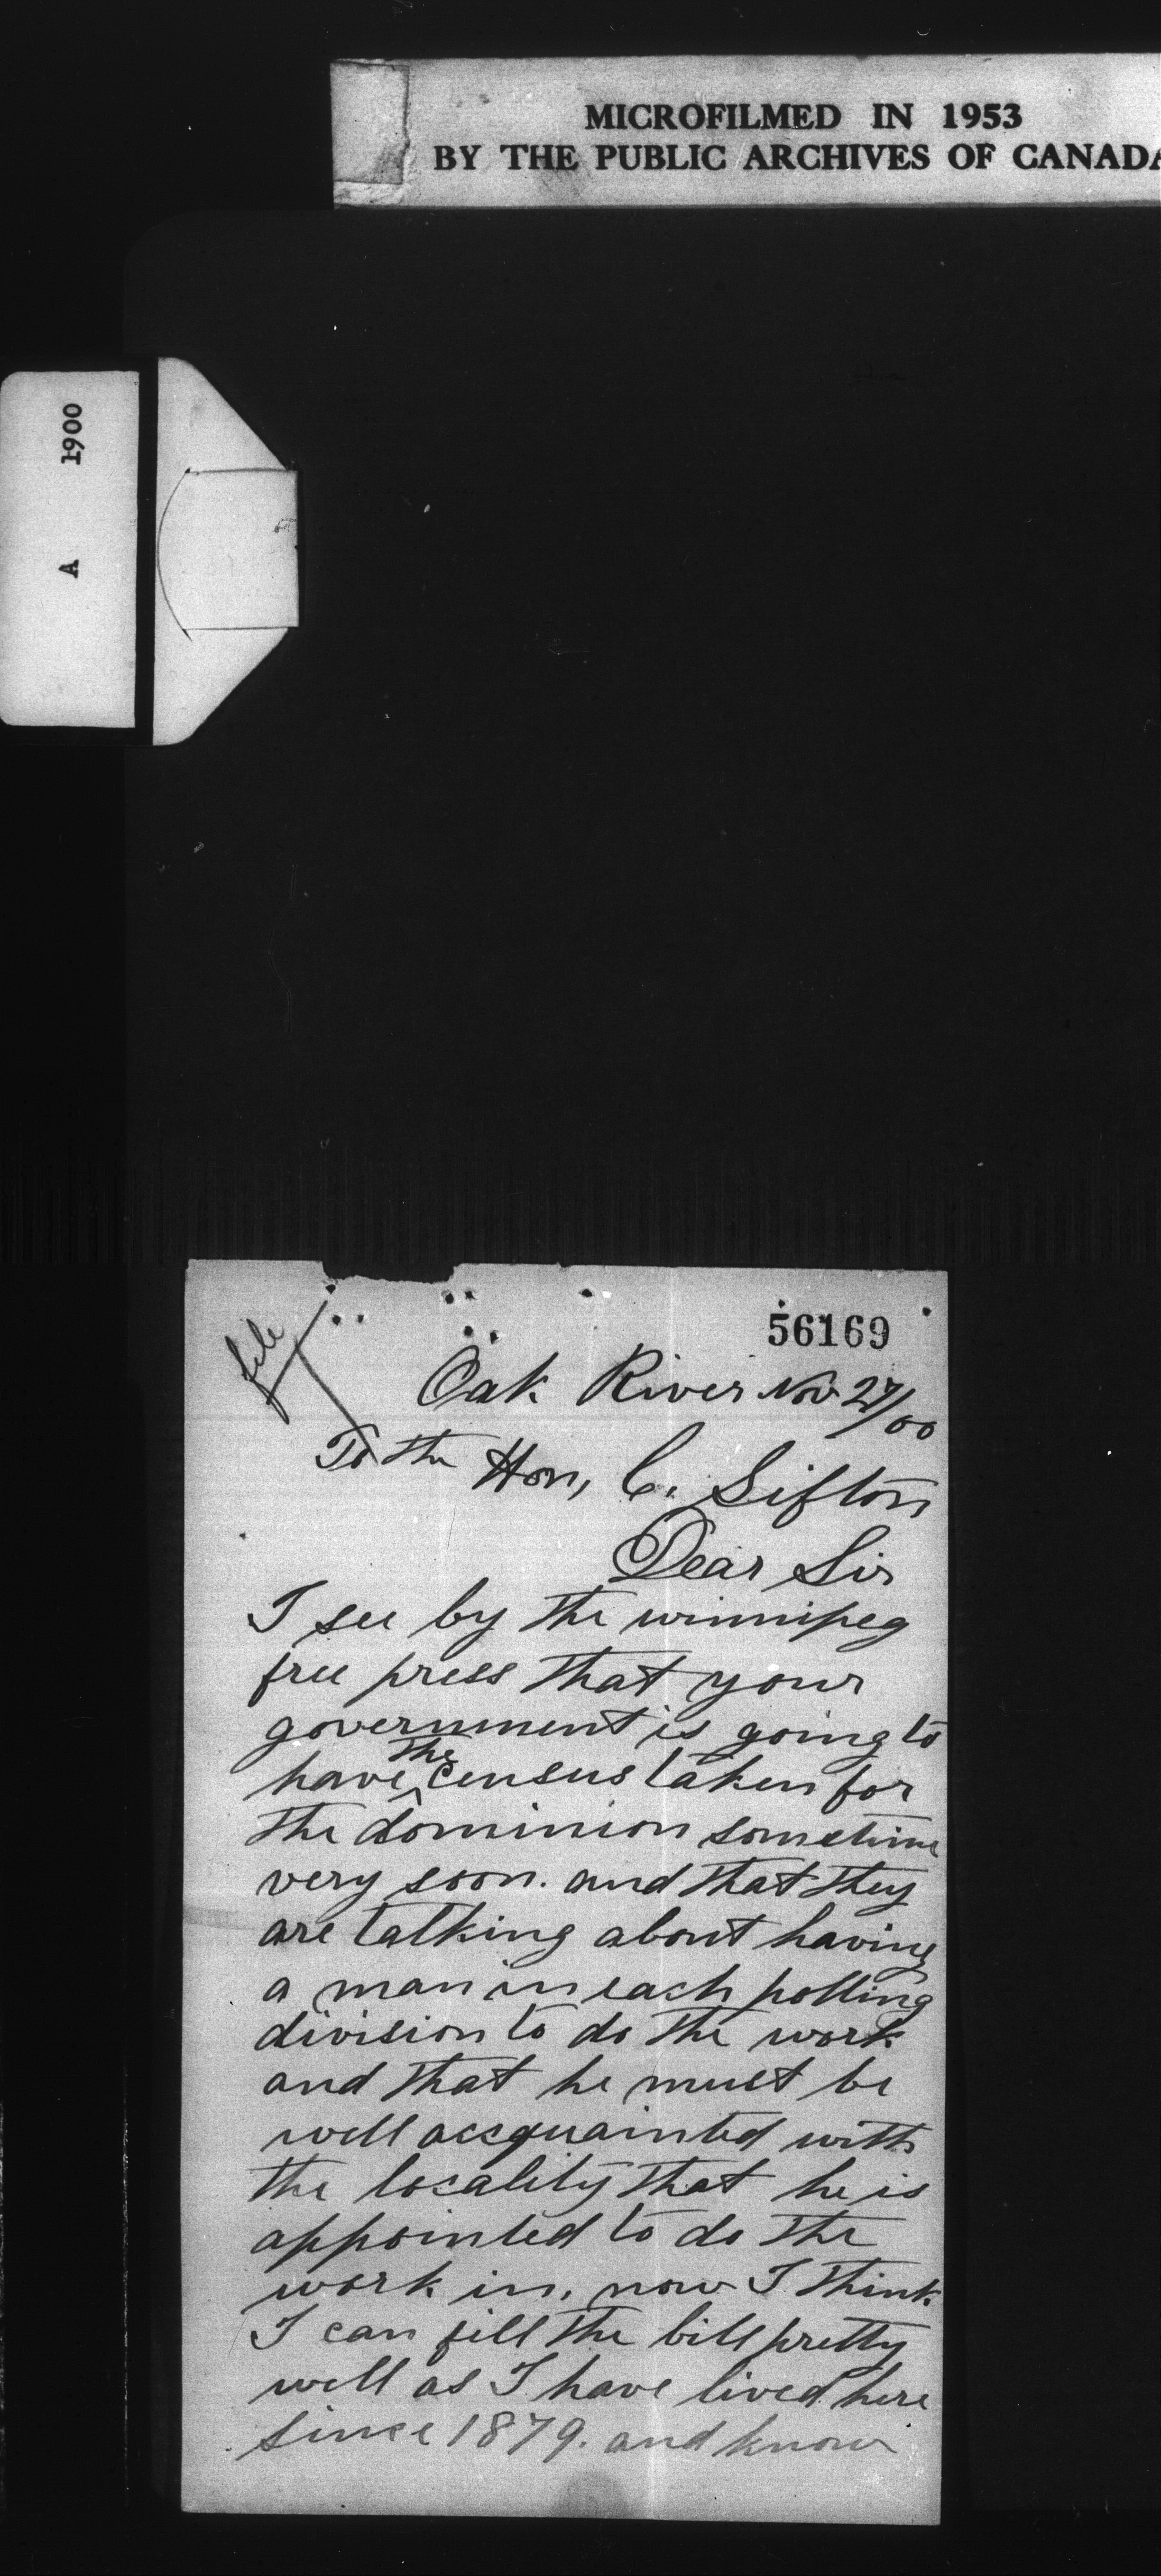 MICROFILMED IN 1953
BY THE PUBLIC ARCHIVES OF CANADA
A 1900
file
56169
Oak River Nov 27/00
To the Hon, C. Sifton
Dear Sir
I see by the winnipeg
free press that your
government is going to
have the census taken for
the dominion sometime
very soon. and that they
are talking about having
a man in each polling
division to do the work
and that he must be
well accquainted with
the locality that he is
appointed to do the
work in, now I think
I can fill the bill pretty
well as I have lived here
since 1879. and know